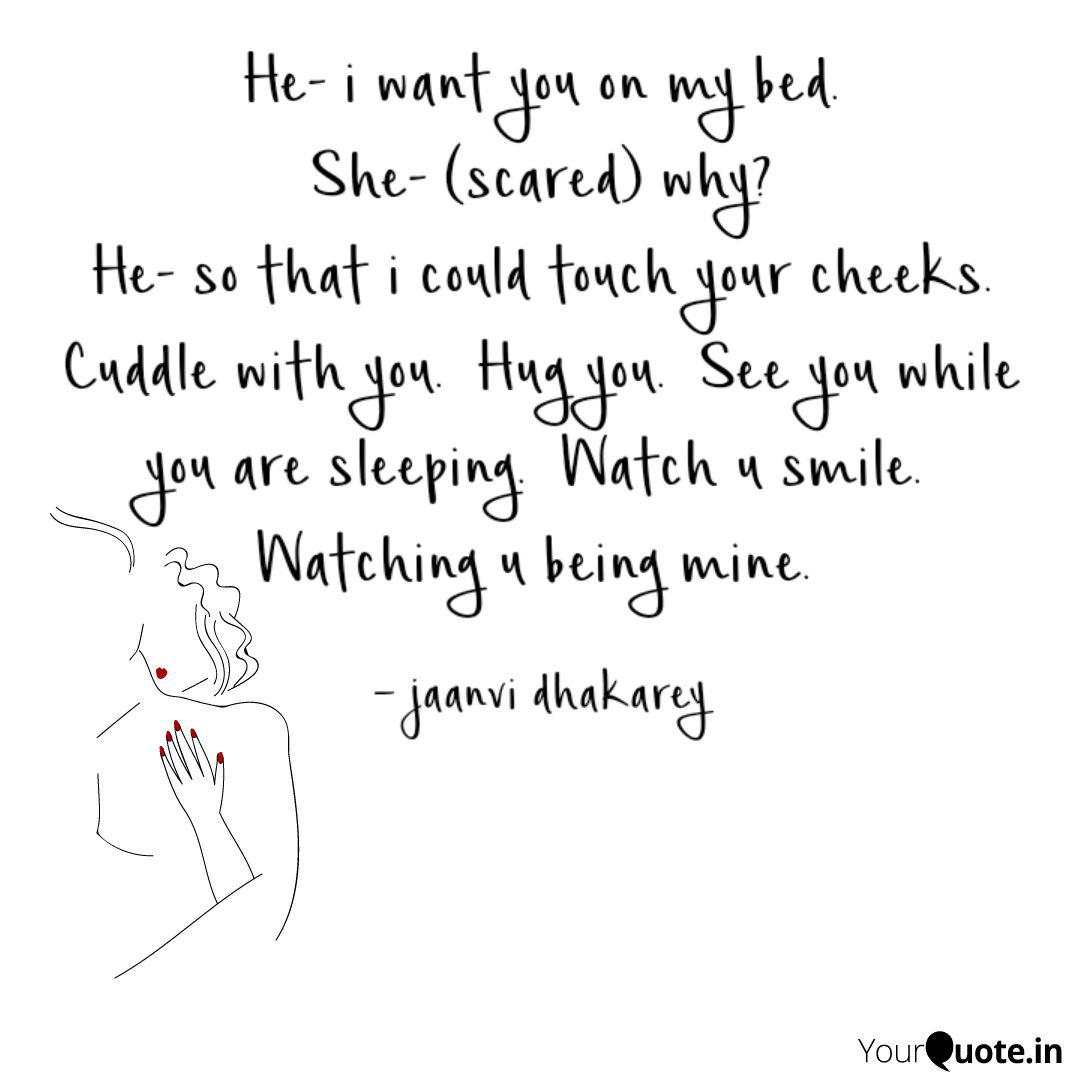 He- i want you on my bed.
She- (scared) why?
He- so that i could touch your cheeks.
Cuddle with you. Hug you. See you while
you are sleeping. Watch u smile.
Watching u being mine.
- jaanvi dhakarey
YourQuote.in